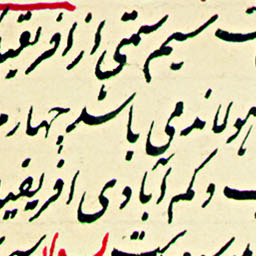 ت سیم سمتی از افریقیه
هولاند می باشد چهارم
ب و کم آبادی افریقیه